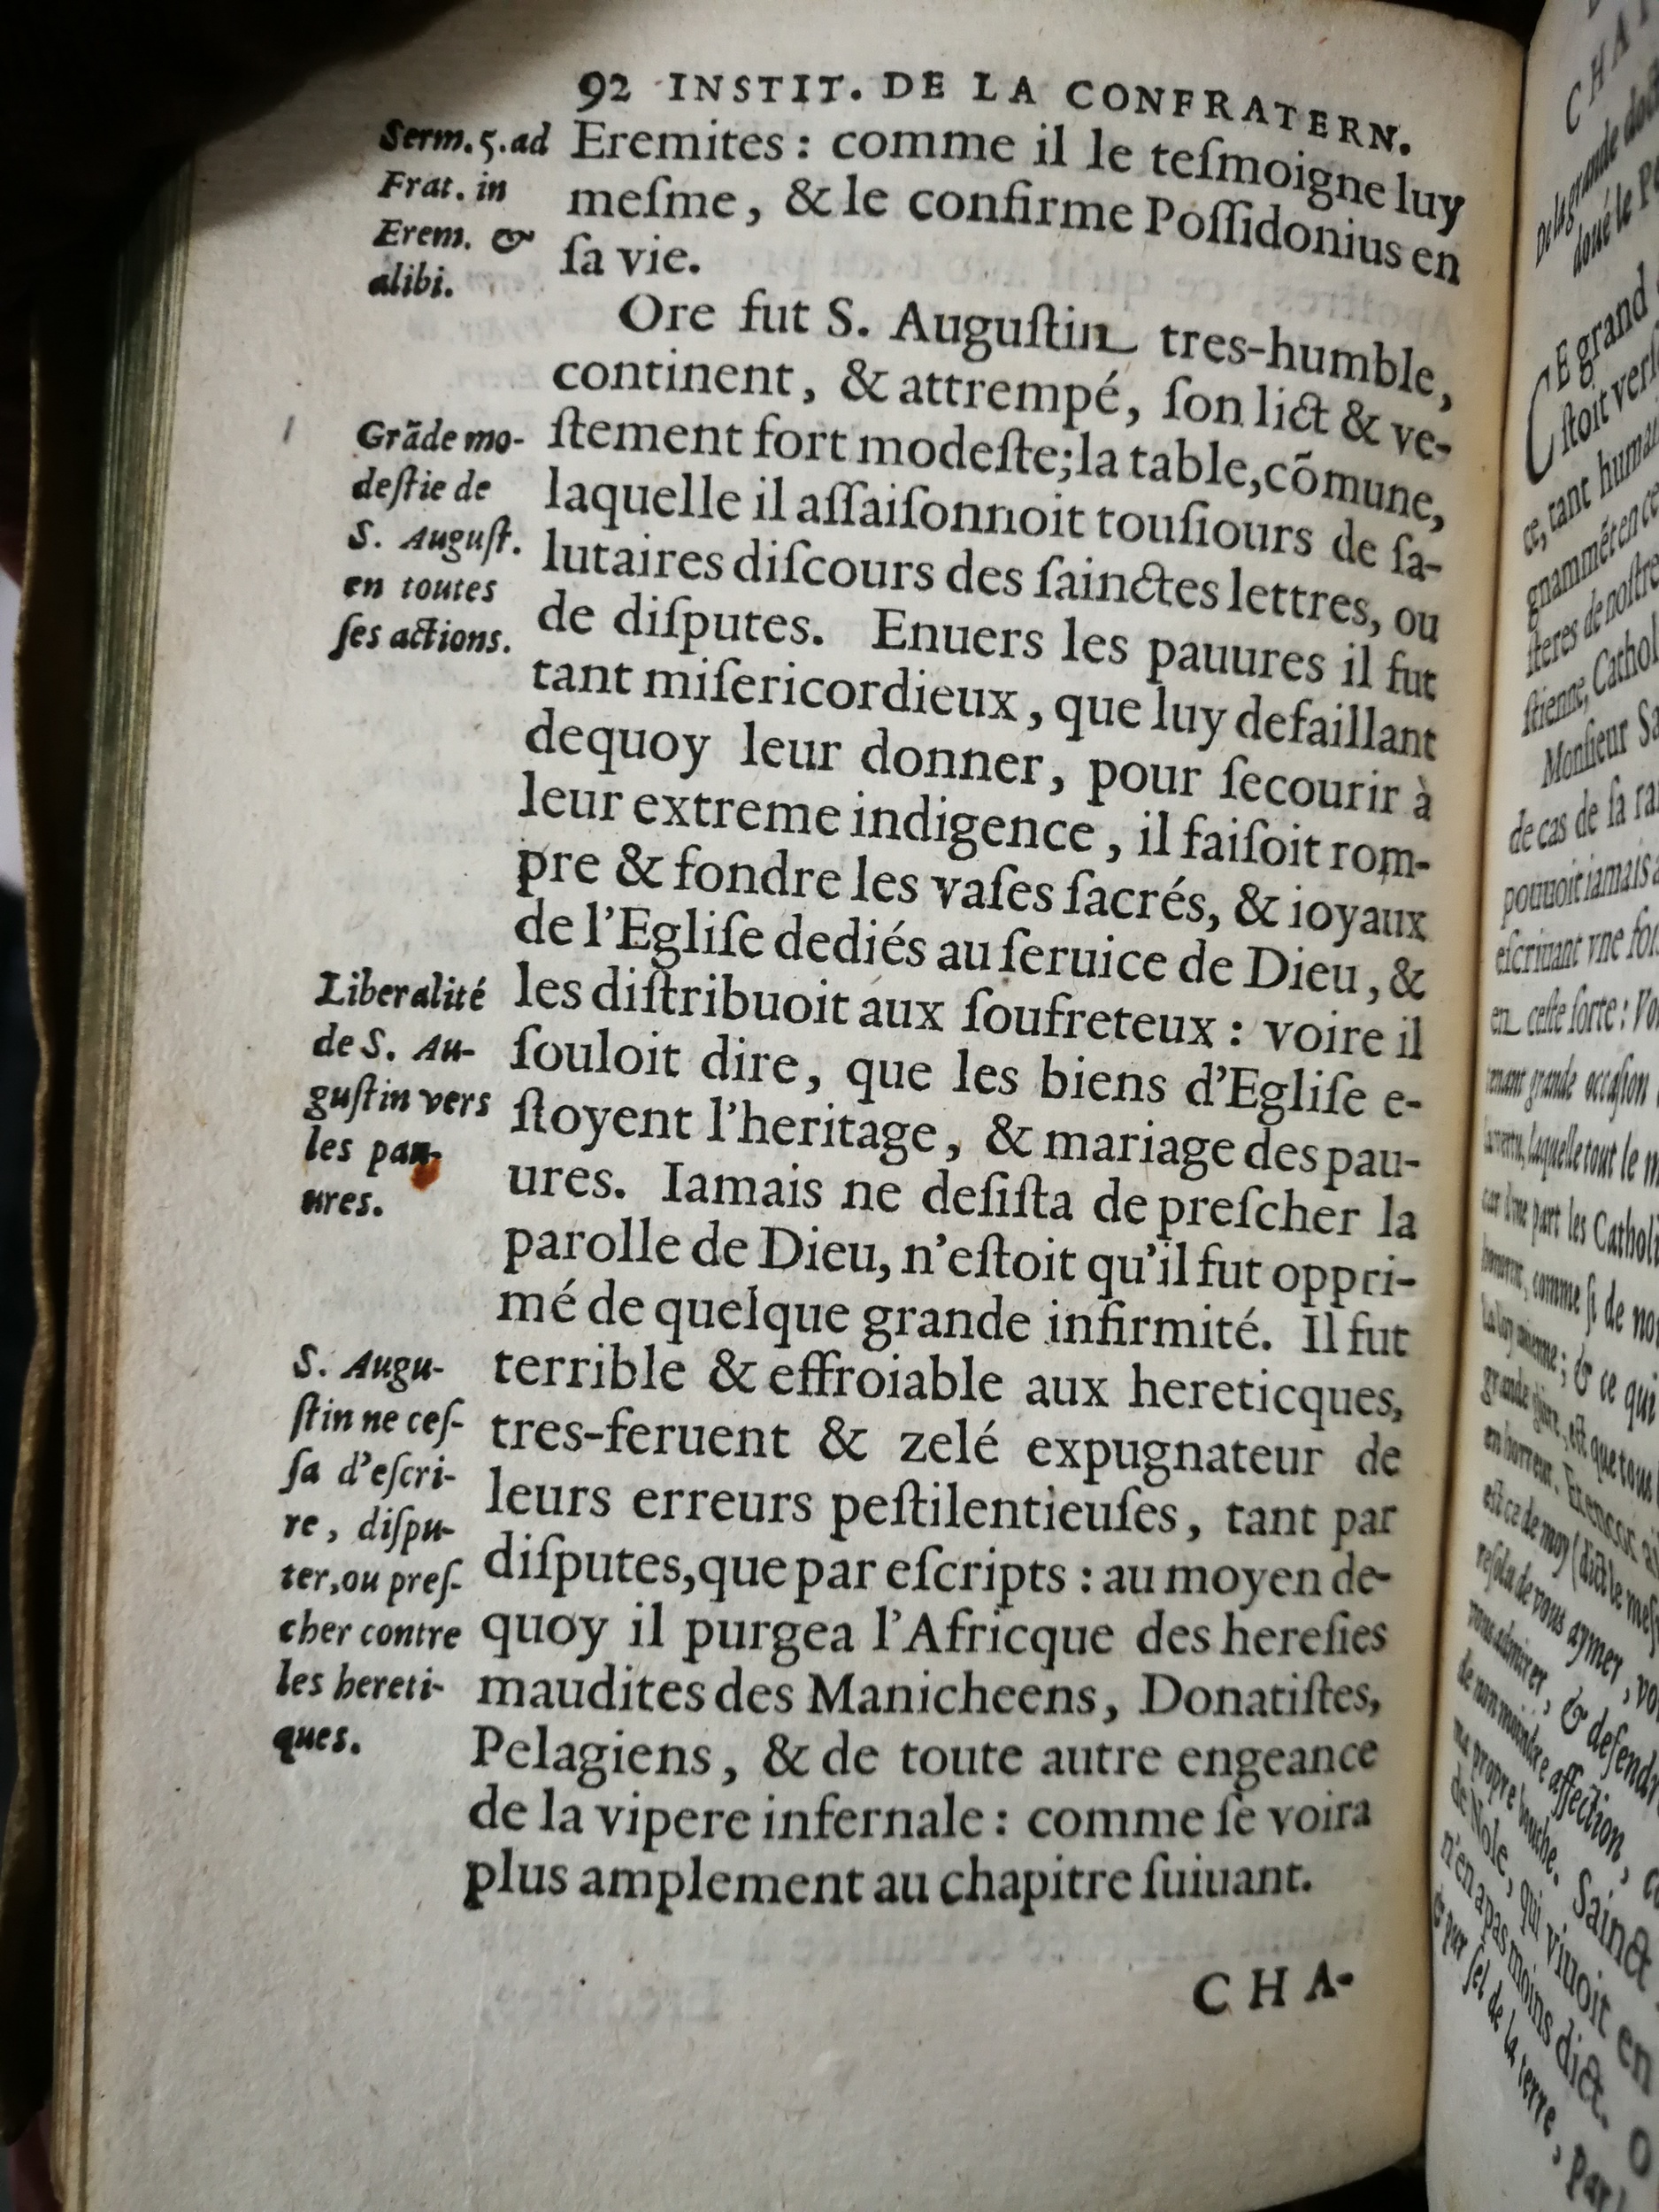 92 INSTIT. DE LA CONFRATERN.
Serm. 5. ad
Frat. in
Erem. &
alibi.
Eremites : comme il le teſmoigne luy
meſme, & le confirme Poſſidonius en
ſa vie.
Ore fut S. Auguſtin tres-humble,
continent, & attrempé, ſon lict & ve-
ſtement fort modeſte; la table, cõmune,
laquelle il aſſaiſonnoit touſiours de ſa-
lutaires diſcours des ſainctes lettres, ou
de diſputes. Enuers les pauures il fut
tant miſericordieux, que luy defaillant
dequoy leur donner, pour ſecourir à
leur extreme indigence, il faiſoit rom-
pre & fondre les vaſes ſacrés, & ioyaux
de l'Egliſe dediés au ſeruice de Dieu, &
les diſtribuoit aux ſoufreteux : voire il
ſouloit dire, que les biens d'Egliſe e-
ſtoyent l'heritage, & mariage des pau-
ures. Iamais ne deſiſta de preſcher la
parolle de Dieu, n'eſtoit qu'il fut oppri-
mé de quelque grande infirmité. Il fut
terrible & effroiable aux hereticques,
tres-feruent & zelé expugnateur de
leurs erreurs peſtilentieuſes, tant par
diſputes, que par eſcripts : au moyen de-
quoy il purgea l'Africque des hereſies
maudites des Manicheens, Donatiſtes,
Pelagiens, & de toute autre engeance
de la vipere infernale : comme ſe voira
plus amplement au chapitre ſuiuant.
Grãde mo-
deſtie de
S. Auguſt.
en toutes
ſes actions.
Liberalité
de S. Au-
guſtin vers
les pau-
ures.
S. Augu-
ſtin ne ceſ-
ſa d'eſcri-
re, diſpu-
ter, ou preſ-
cher contre
les hereti-
ques.
CHA-
CE grand
ſtoit verſ
ce, tant humai
gnammẽt en ce
ſteres de noſtre
ſtienne, Cathol
Monſieur Sa
de cas de ſa ra
pouuoit iamais a
eſcriuant vne foi
en ceſte ſorte : Vo
grande occaſion
laquelle tout le m
part les Catholi
comme ſi de no
; & ce qui
eſt que tous
de moy (dict le meſ
de vous aymer, vo
, & defendr
affection, c
propre bouche. Sainct
de Nole, qui viuoit en
n'en a pas moins dict. O
ſel de la terre, par